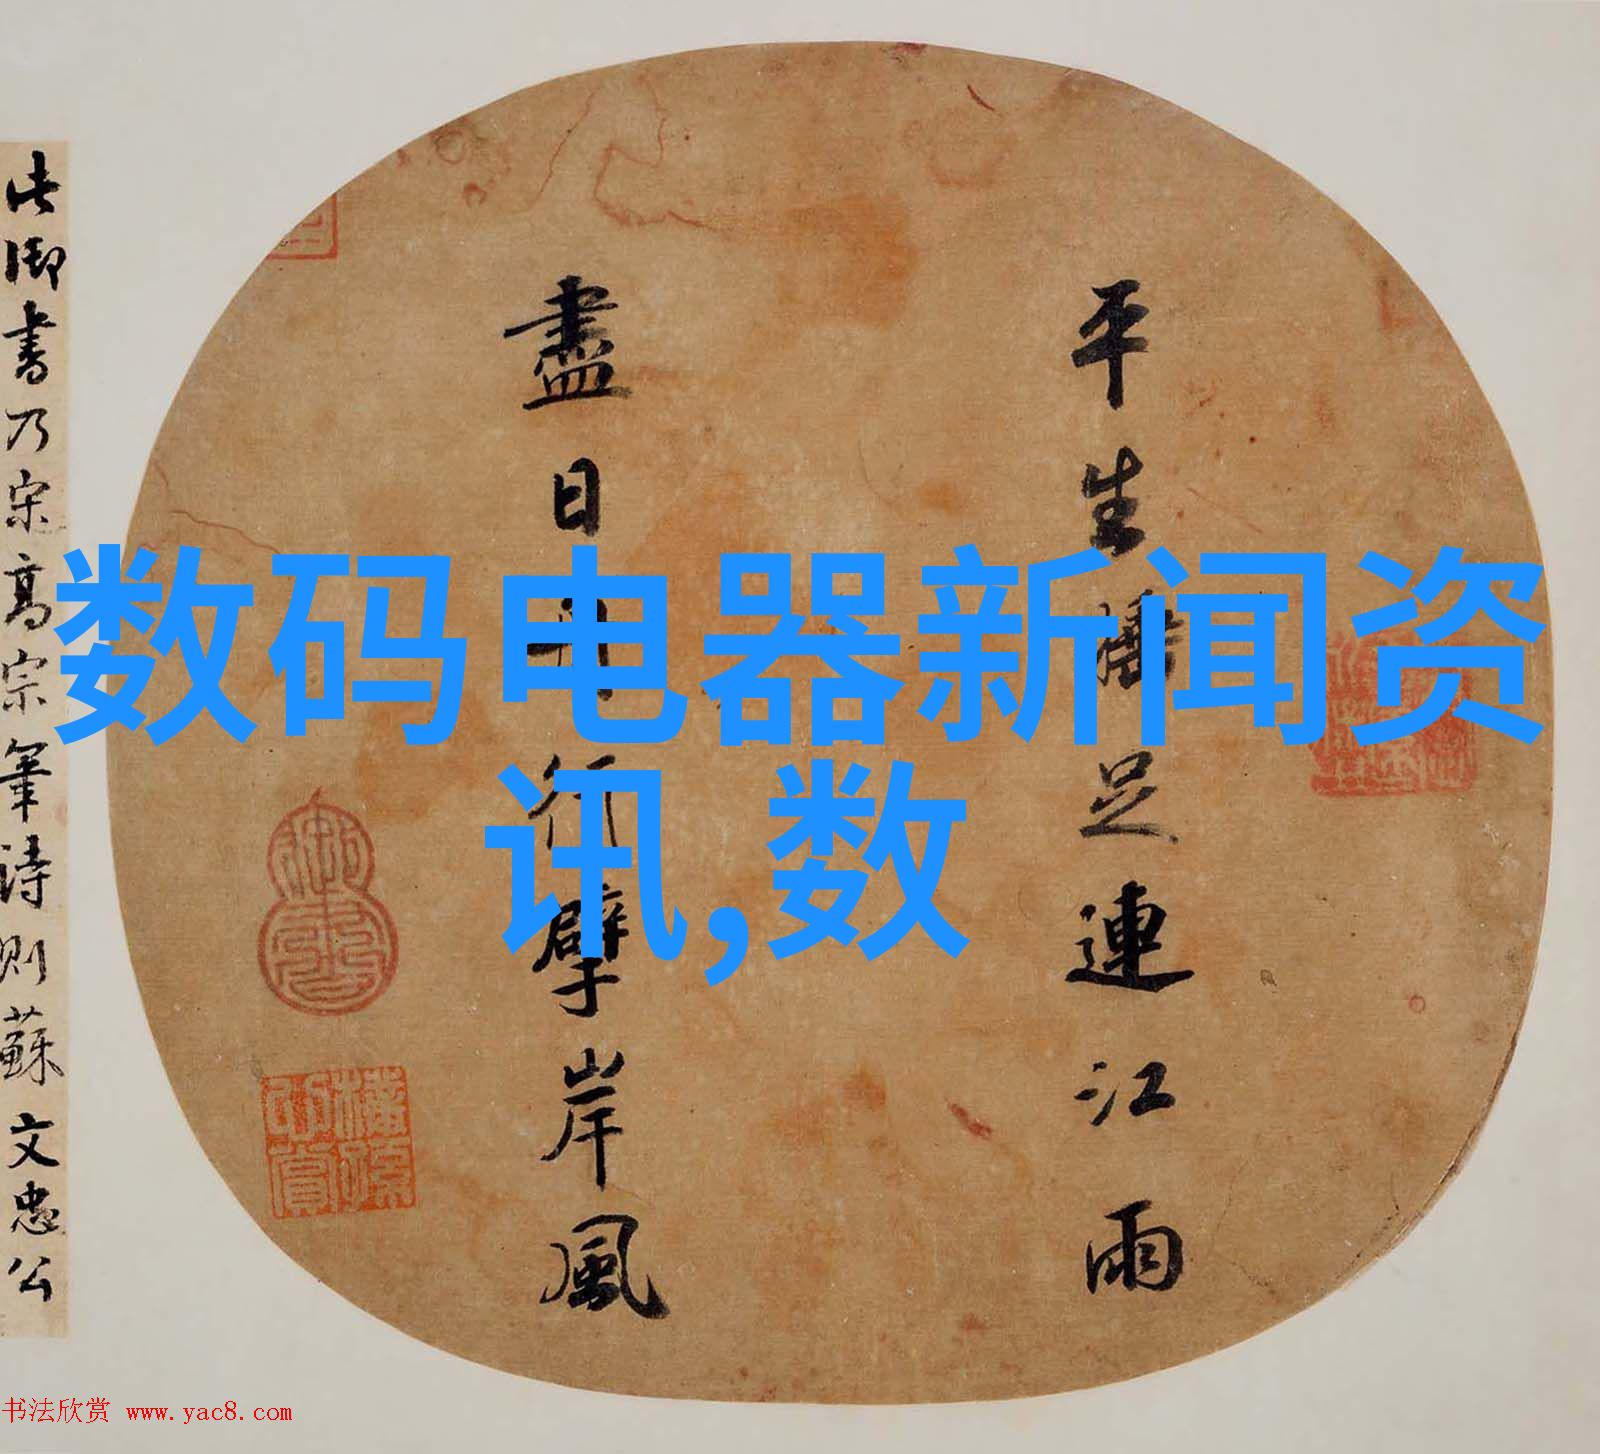 数码电器新闻资
讯,数
平生睡足連江雨
盡日舟行擘岸風
此御書乃宋高宗筆詩則蘇文忠公
书法欣赏 www.yac8.com